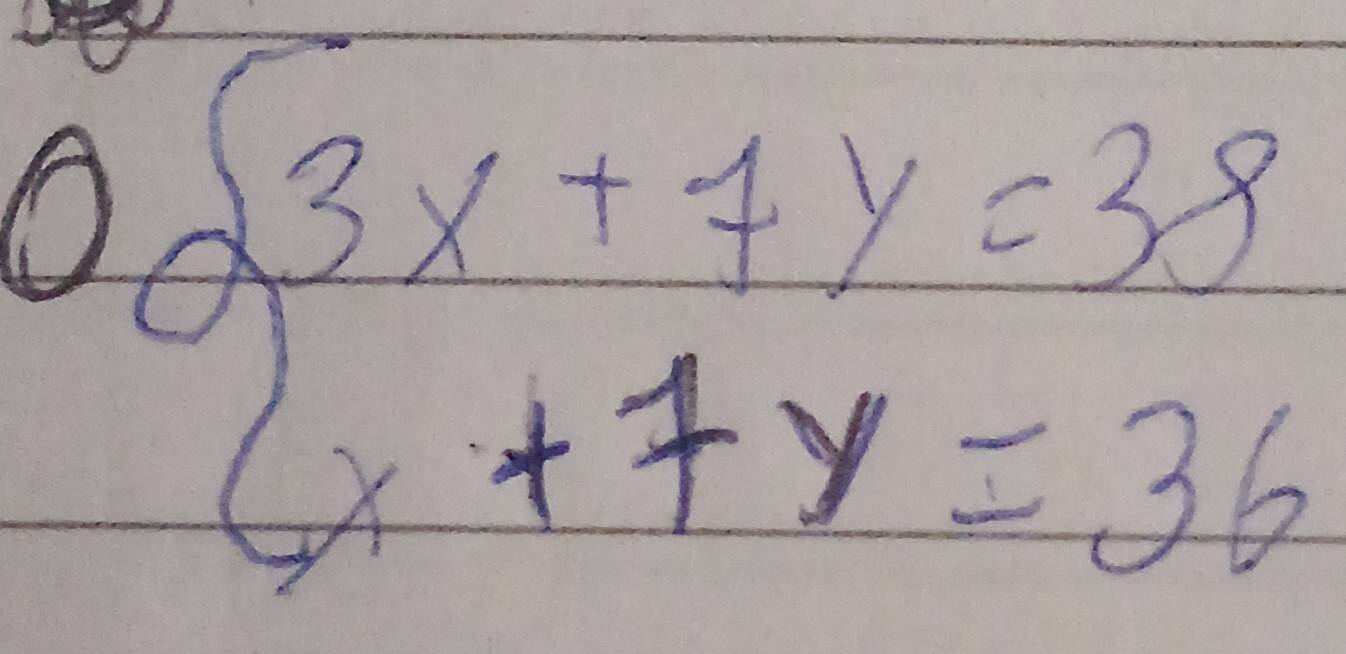 0 { 3x + 7y = 38
x + 7y = 36